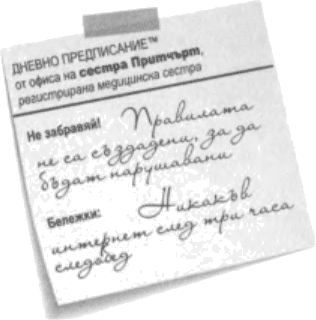 ДНЕВНО ПРЕДПИСАНИЕ™
от офиса на сестра Притчърт,
регистрирана медицинска сестра
Не забравяй! Правилата
не са създадени, за да
бъдат нарушавани
Бележки: Никакъв
интернет след три часа
следобед